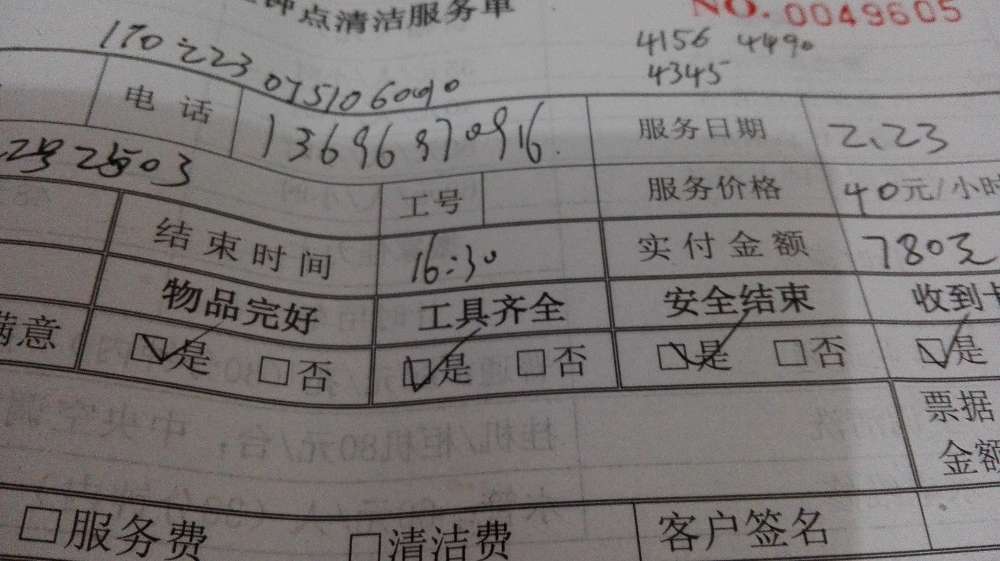 钟点清洁服务单 NO. 0049605
4156 4490
4345
170223 0751060010
电话 13696970916 服务日期 2.23
2503 工号 服务价格 40元/小时
结束时间 16:30 实付金额 780元
物品完好 工具齐全 安全结束 收到
满意 是 否 是 否 是 否 是
挂机/柜机80元/台, 中央空调
票据
金额
服务费 清洁费 客户签名